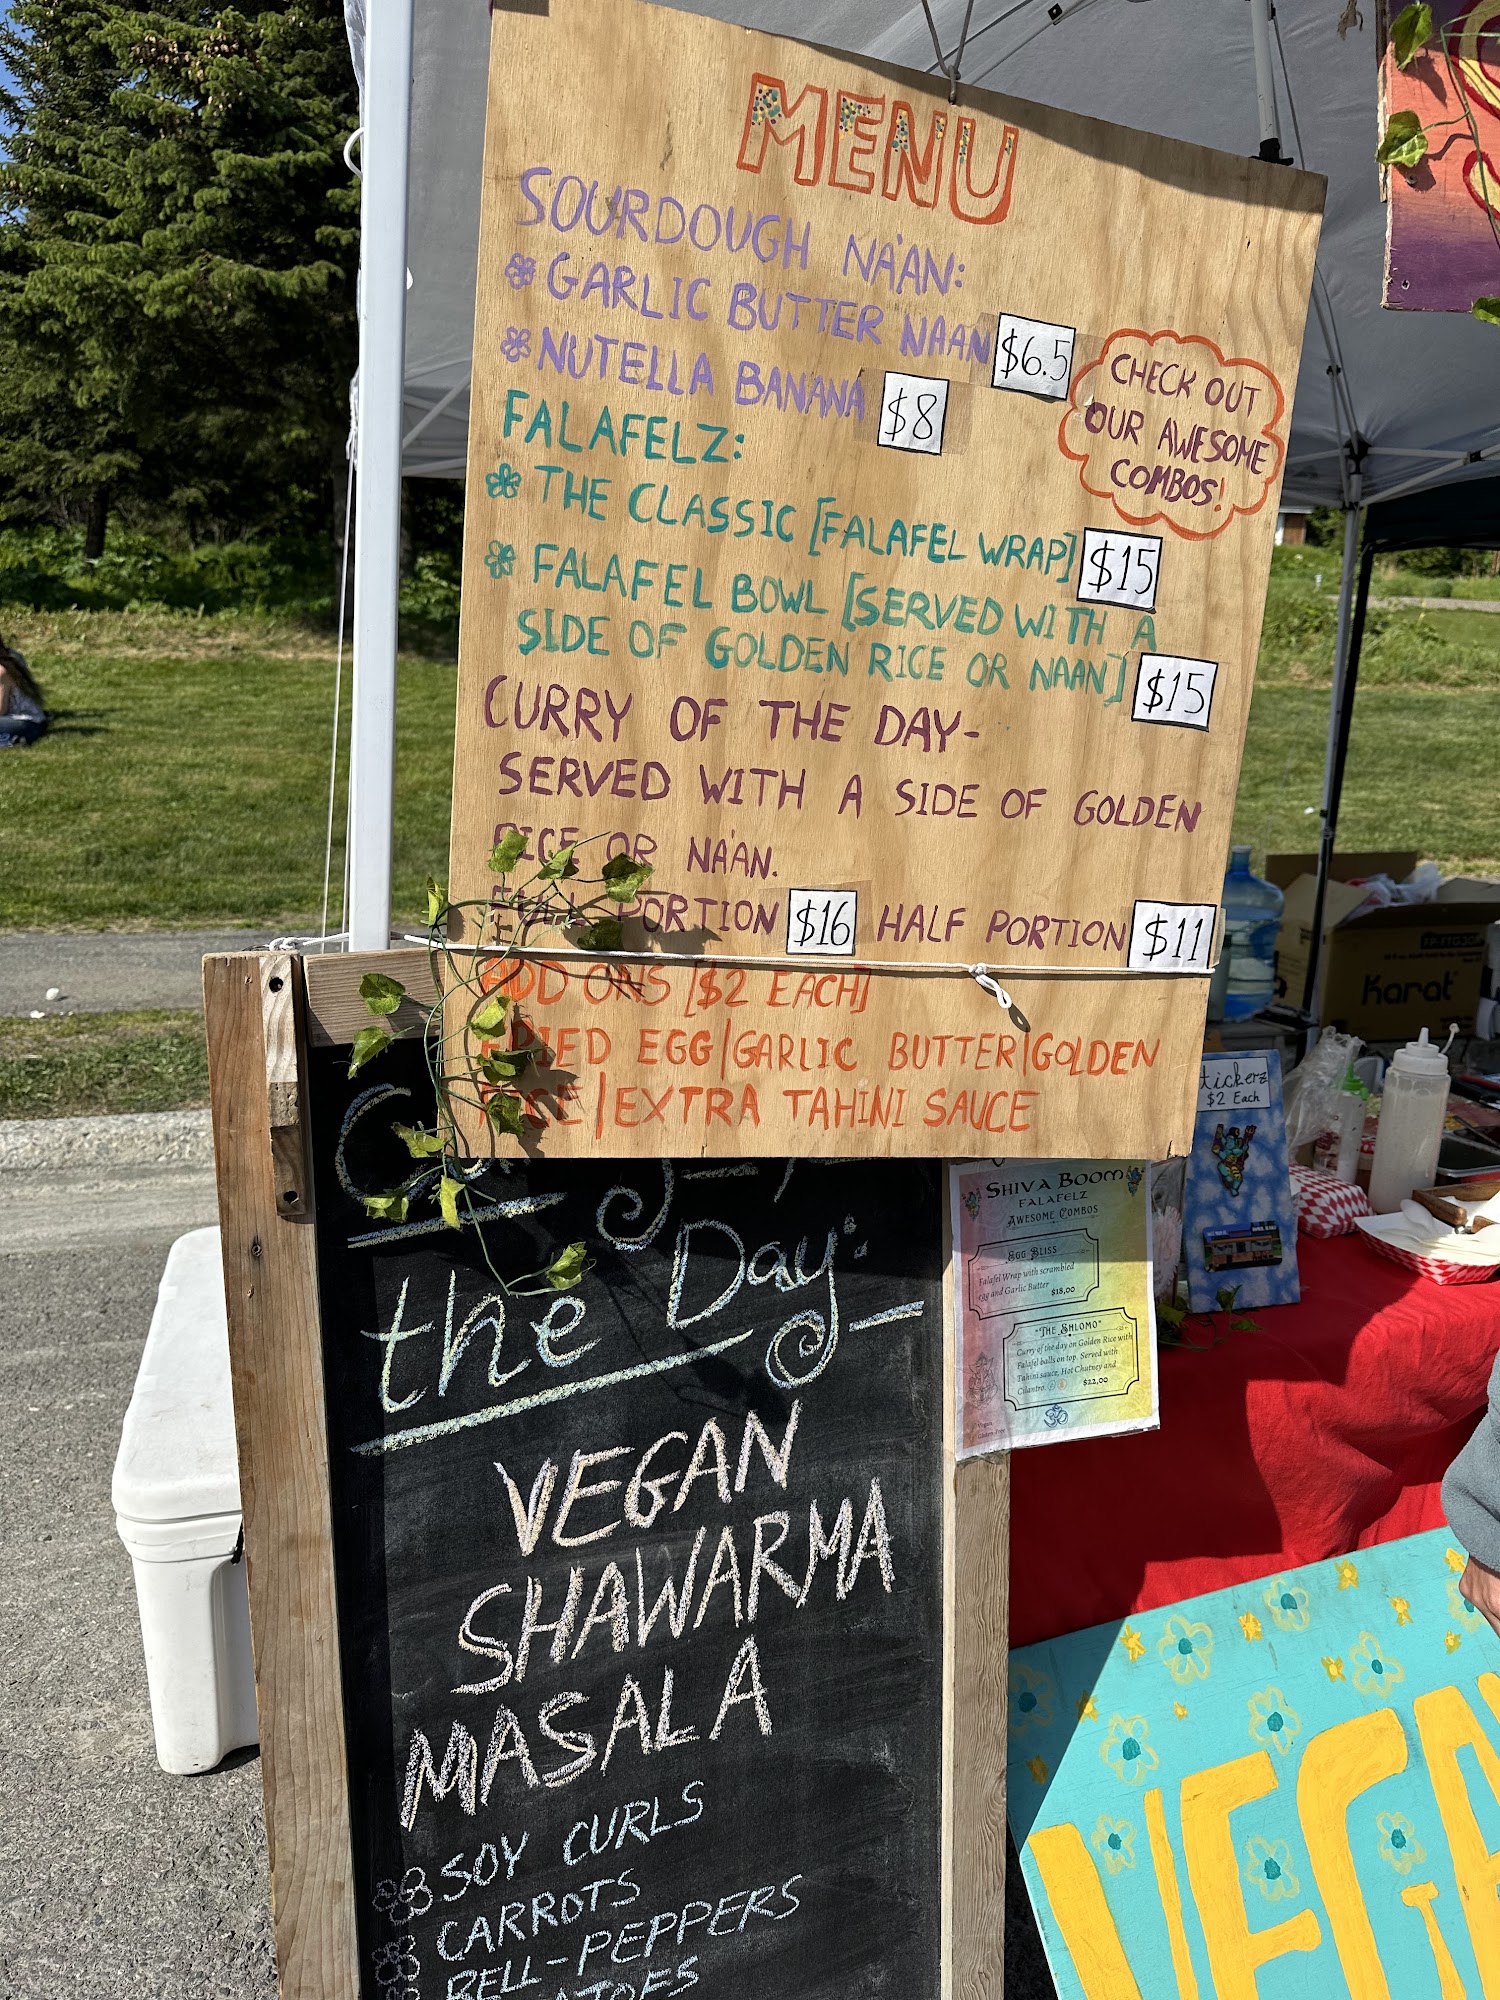 MENU
SOURDOUGH NA'AN:
GARLIC BUTTER NAAN $6.5
NUTELLA BANANA $8
CHECK OUT
OUR AWESOME
COMBOS!
FALAFELZ:
THE CLASSIC [FALAFEL WRAP] $15
FALAFEL BOWL [SERVED WITH A
SIDE OF GOLDEN RICE OR NAAN] $15
CURRY OF THE DAY-
SERVED WITH A SIDE OF GOLDEN
RICE OR NA'AN.
FULL PORTION $16 HALF PORTION $11
ADD ONS [$2 EACH]
FRIED EGG|GARLIC BUTTER|GOLDEN
RICE|EXTRA TAHINI SAUCE
the Day:
VEGAN
SHAWARMA
MASALA
SOY CURLS
CARROTS
BELL-PEPPERS
SHIVA BOOM
FALAFELZ
AWESOME COMBOS
EGG BLISS
Falafel Wrap with scrambled
egg and Garlic Butter $18,00
"THE SHLOMO"
Curry of the day on Golden Rice with
Falafel balls on top. Served with
Tahini sauce, Hot Chutney and
Cilantro. $22,00
Vegan
Gluten Free
tickerz
$2 Each
Karat
VEGA